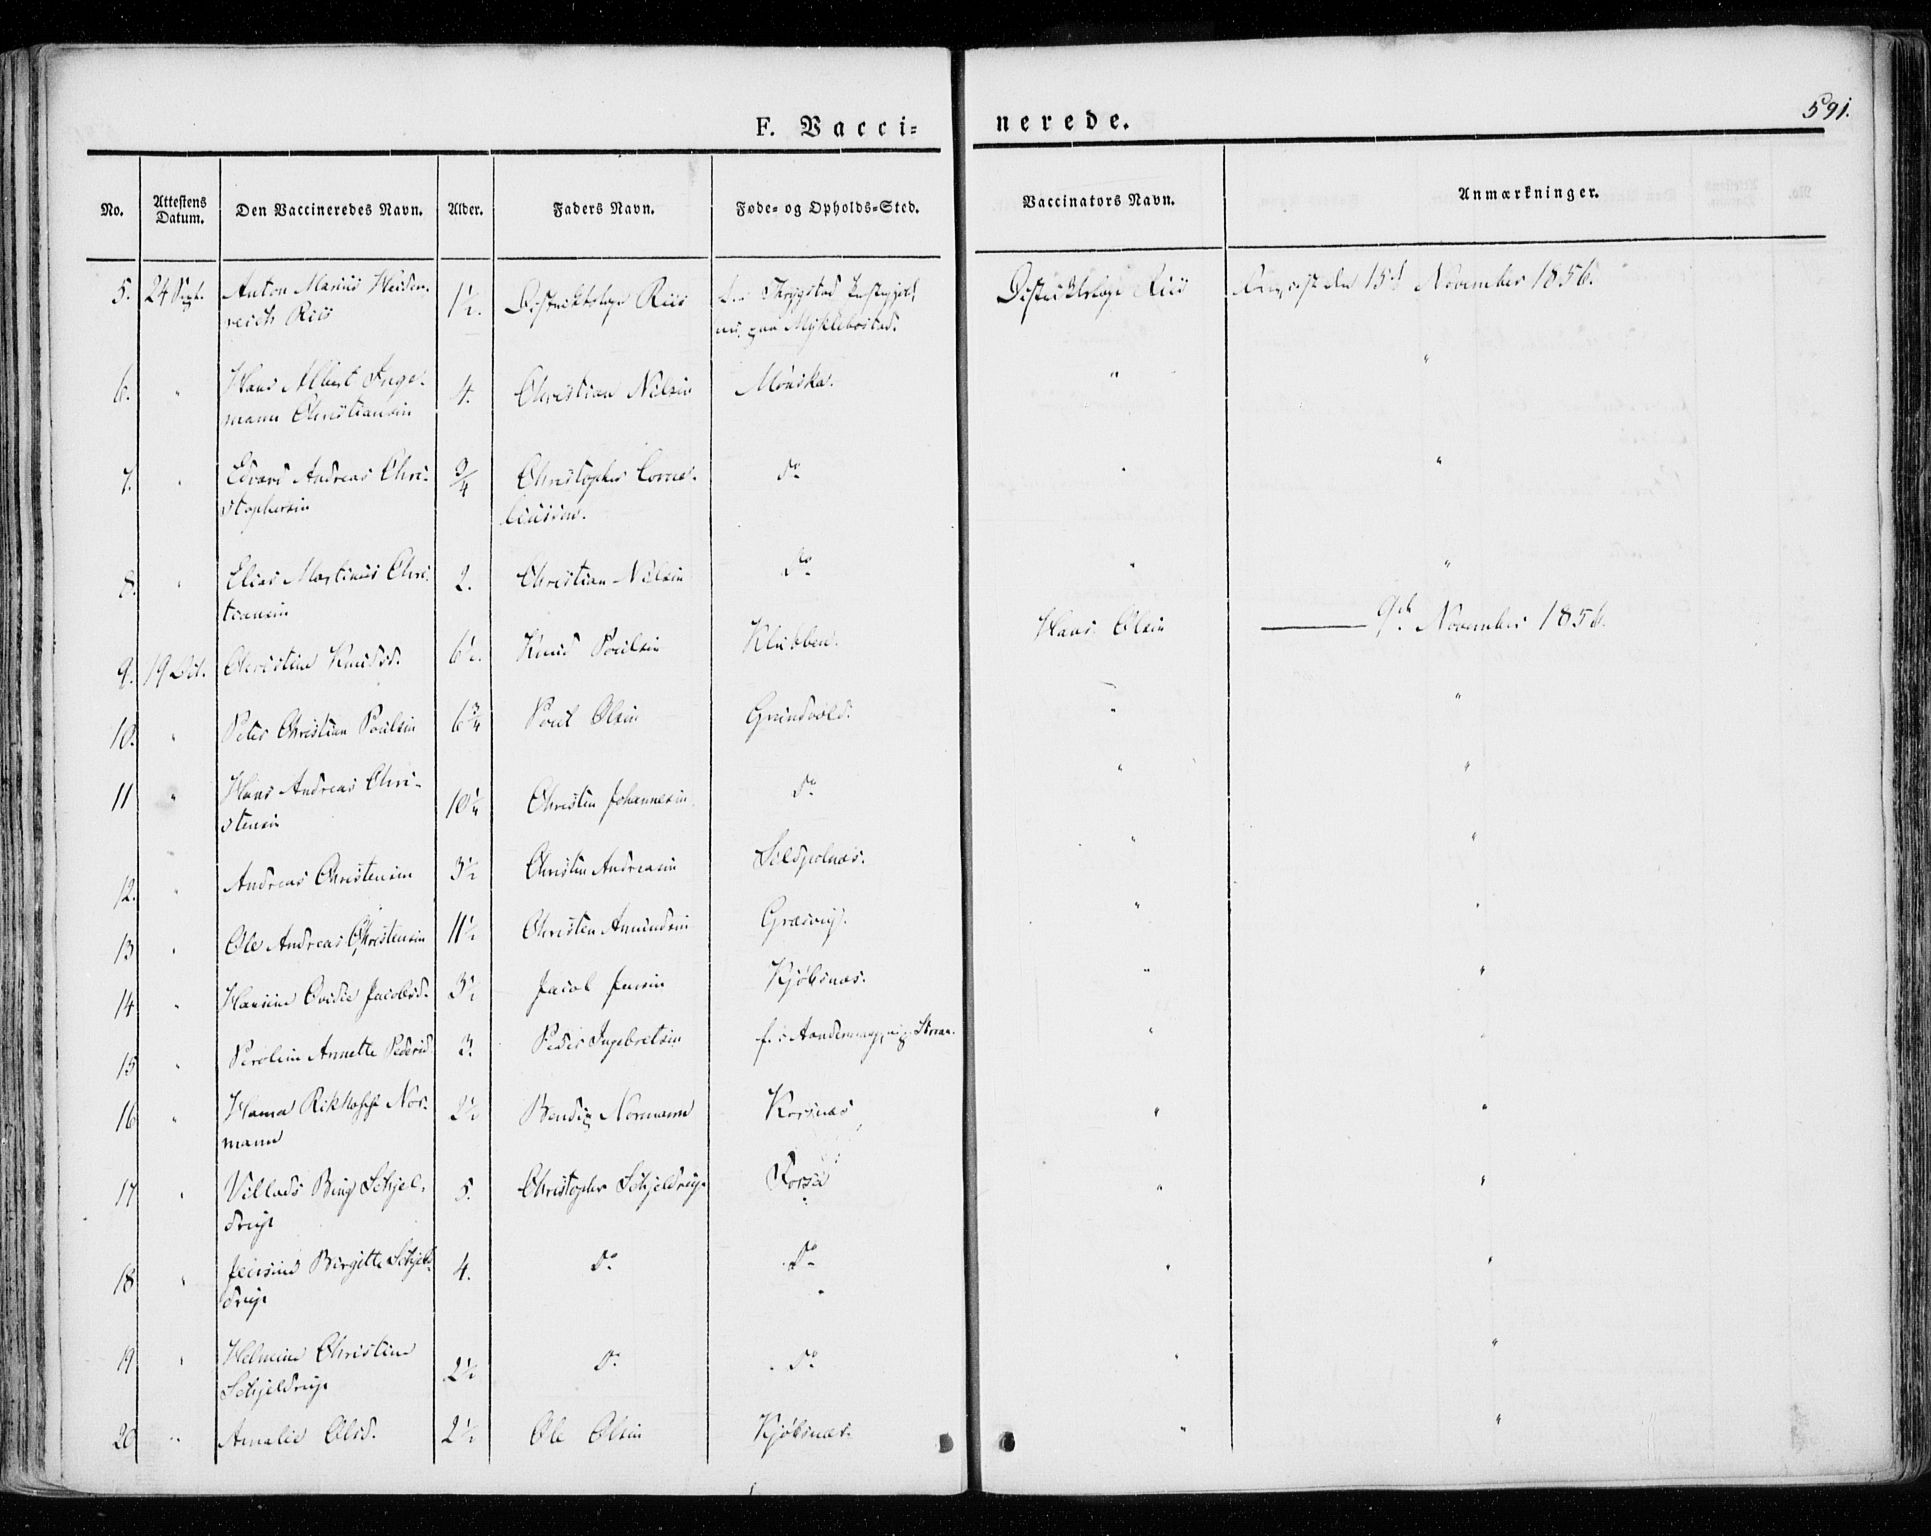 591.
F. Vaccinerede.
No. Attestens Datum. Den Vaccineredes Navn. Alder. Faders Navn. Føde- og Opholds-Sted. Vaccinators Navn. Anmærkninger.
5. 24 Sept. Anton Marius Heidenreich Riis 1½. Distriktslæge Riis Thrygstad nu paa Myklebostad. Distriktslæge Riis den 15d November 1856.
6. " Hans Albert Ingemann Christiansen 4. Christian Nilsen Mönska. " "
7. " Edvard Andreas Christophersen ¾ Christopher Corneliussen. do " "
8. " Elias Martinus Christiansen 2. Christian Nilsen do " "
9. 19 Oct. Christine Knudsd. 6½. Knud Poulsen Klubben. Hans Olsen — 9d November 1856.
10. " Peter Christian Poulsen 6¾ Poul Olsen Grundvold. " "
11 " Hans Andreas Christensen 10¼ Christen Johannesen do " "
12. " Andreas Christensen 3½ Christen Andreasen Sildpolnæs. " "
13 " Ole Andreas Christensen 11½ Christen Amundsen Græsvig. " "
14 " Hansine Ovidie Jacobsd. 3½ Jacob Jensen Kjøbsnæs. " "
15 " Peroline Annette Pedersd. 3. Peder Ingebretsen f. i " "
16 " Hanna Rikhoff Normann 2½ Bendix Normann Korsnæs " "
17 " Villads Bing Schjeldrup 5. Christopher Schjeldrup Korsn " "
18 " Birgitte Schjeldrup 4. do do " "
19 " Helmine Christine Schjeldrup 2½ do do " "
20 " Amalie Olsd. 2½ Ole Olsen Kjøbsnæs. " "